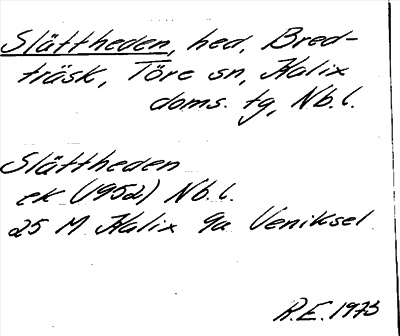 Slättheden, hed, Bred-
träsk, Töre sn, Kalix
doms. tg, Nb. l.
Slättheden
ek (1952) Nb. l.
25 M Kalix 9a Veniksel
R.E. 1973